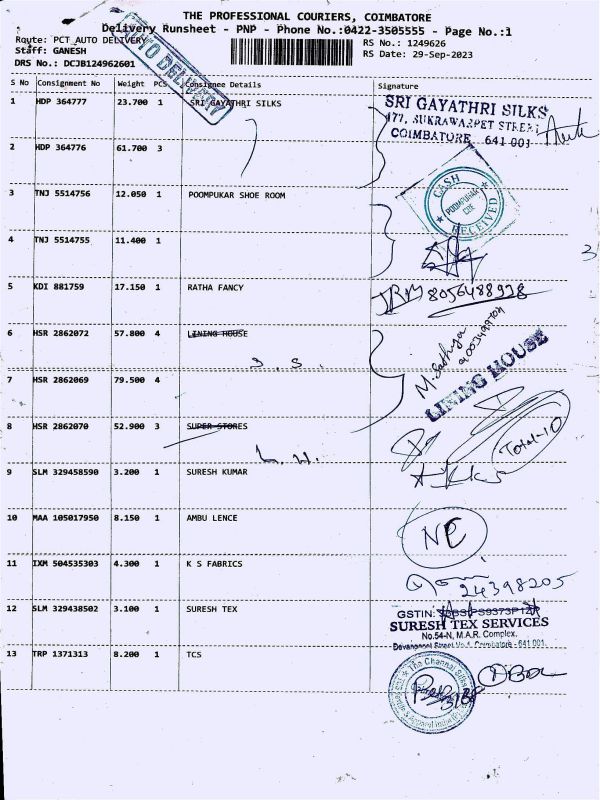 THE PROFESSIONAL COURIERS, COIMBATORE
Delivery Runsheet - PNP - Phone No.:0422-3505555 - Page No.:1
Route: PCT AUTO DELIVERY
RS No.: 1249626
Staff: GANESH
RS Date: 29-Sep-2023
DRS No.: DCJB124962601
AUTO DELIVERY
S No Consignment No Weight PCS Consignee Details Signature
1 HDP 364777 23.700 1 SRI GAYATHRI SILKS
SRI GAYATHRI SILKS
177, SUKRAWARPET STREET
COIMBATORE 641 001
2 HDP 364776 61.700 3
3 TNJ 5514756 12.050 1 POOMPUKAR SHOE ROOM
CASH
POOMPUKAR
CBE
RECEIVED
4 TNJ 5514755 11.400 1
3
5 KDI 881759 17.150 1 RATHA FANCY
8056488938
6 HSR 2862072 57.800 4 LINING HOUSE
S. S.
M. Sathya
LINING HOUSE
7 HSR 2862069 79.500 4
8 HSR 2862070 52.900 3 SUPER STORES
L. H.
Total-10
9 SLM 329458590 3.200 1 SURESH KUMAR
10 MAA 105017950 8.150 1 AMBU LENCE
NE
11 IXM 504535303 4.300 1 K S FABRICS
24398205
12 SLM 329438502 3.100 1 SURESH TEX
GSTIN:
SURESH TEX SERVICES
No.54-N, M.A.R. Complex,
Devangapet Street No.4, Coimbatore - 641 001.
13 TRP 1371313 8.200 1 TCS
The Chennai Silks